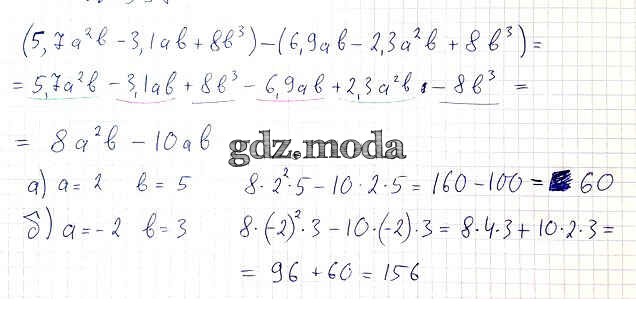 (5,7a²b - 3,1ab + 8b³) - (6,9ab - 2,3a²b + 8b³) =
= 5,7a²b - 3,1ab + 8b³ - 6,9ab + 2,3a²b - 8b³ =
= 8a²b - 10ab
gdz.moda
а) a = 2 b = 5 8·2²·5 - 10·2·5 = 160 - 100 = 60
б) a = -2 b = 3 8·(-2)²·3 - 10·(-2)·3 = 8·4·3 + 10·2·3 =
= 96 + 60 = 156